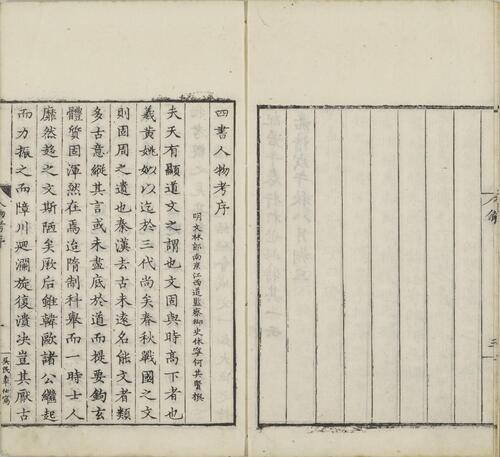 三
四書人物考序
明文林郎南京江西道監察御史休寧何其賢撰
夫天有顯道文之謂也文固與時高下者也
羲黄姚姒以迄於三代尚矣春秋戰國之文
則固周之遺也秦漢去古未逺名能文者類
多古意縱其言或未盡底於道而提要鈎玄
體質固渾然在焉迨隋制科舉而一時士人
靡然趨之文斯陋矣厥后雖韓歐諸公繼起
而力振之而障川廻瀾旋復潰决豈其厭古
人物考序
一